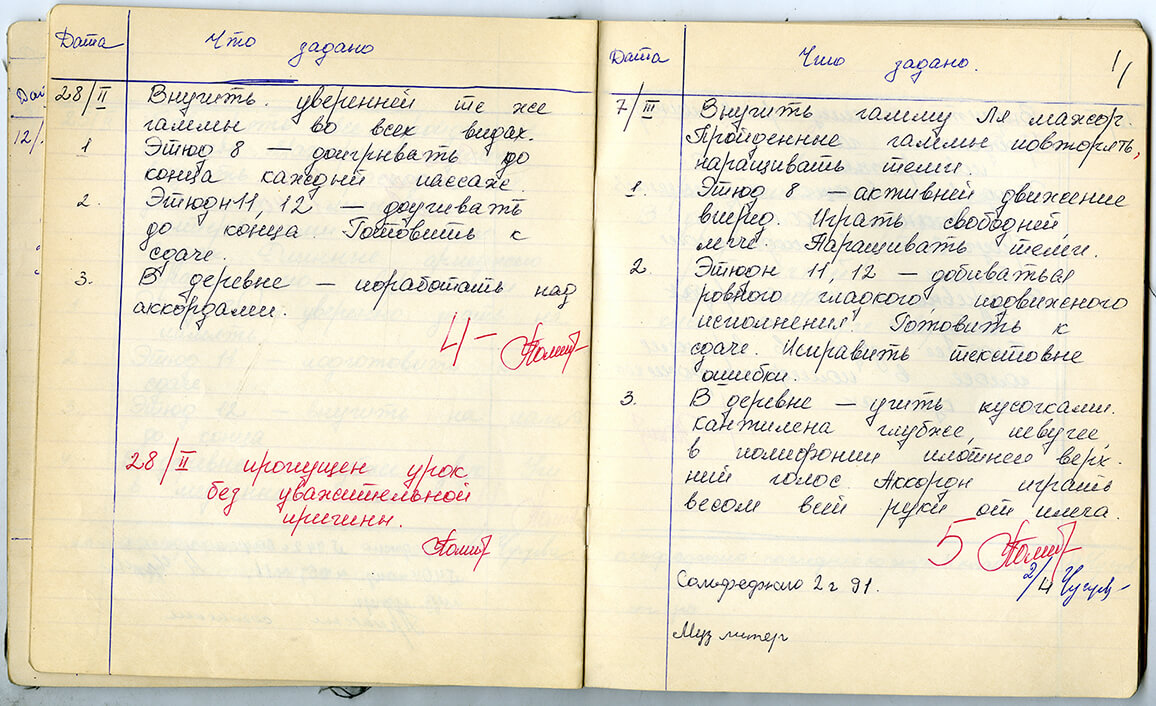 Дата
Что задано
28/II
Выучить уверенней те же
гаммы во всех видах.
1 Этюд 8 — доигрывать до
конца каждый пассаж.
2. Этюды 11, 12 — доучивать
до конца. Готовить к
сдаче.
3. В деревне — поработать над
аккордами.
4-
28/II пропущен урок
без уважительной
причины.
Дата
Что задано.
7/III
Выучить гамму Ля мажор.
Пройденные гаммы повторять,
наращивать темп.
1. Этюд 8 — активней движение
вперед. Играть свободней,
легче. Наращивать темп.
2. Этюды 11, 12 — добиваться
ровного, гладкого, подвижного
исполнения. Готовить к
сдаче. Исправить текстовые
ошибки.
3. В деревне — учить кусочками.
Кантилена глубже, певучее,
в полифонии плотней верх-
ний голос. Аккорды играть
весом всей руки от плеча.
5
2/4
Сольфеджио 2 г 91.
Муз литер
Да
12/